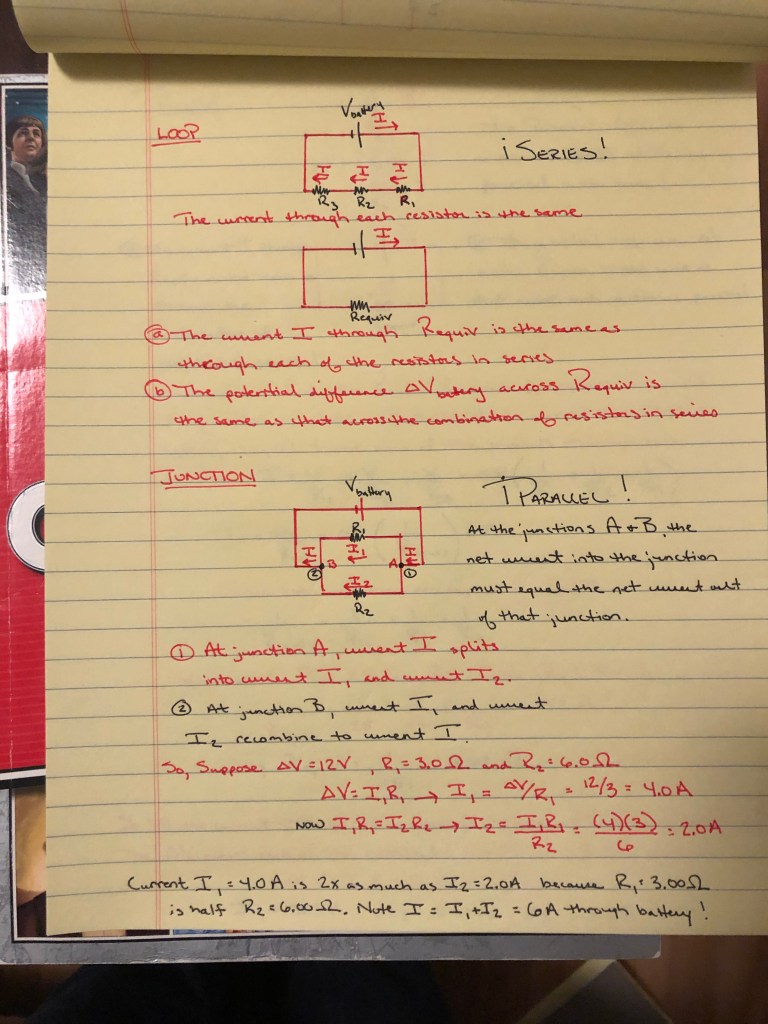 LOOP
V battery
I
¡ SERIES!
I I I
R3 R2 R1
The current through each resistor is the same
I
Requiv
ⓐ The current I through Requiv is the same as
through each of the resistors in series
ⓑ The potential difference ΔVbattery across Requiv is
the same as that across the combination of resistors in series
JUNCTION
V battery
¡ PARALLEL!
R1
I I1 I
② B A ①
I2
R2
At the junctions A & B, the
net current into the junction
must equal the net current out
of that junction.
① At junction A, current I splits
into current I1 and current I2.
② At junction B, current I1 and current
I2 recombine to current I.
So, Suppose ΔV = 12V, R1 = 3.0Ω and R2 = 6.0Ω
ΔV = I1R1 → I1 = ΔV/R1 = 12/3 = 4.0A
NOW I1R1 = I2R2 → I2 = I1R1/R2 = (4)(3)/6 = 2.0A
Current I1 = 4.0A is 2x as much as I2 = 2.0A because R1 = 3.00Ω
is half R2 = 6.00Ω. Note I = I1 + I2 = 6A through battery!